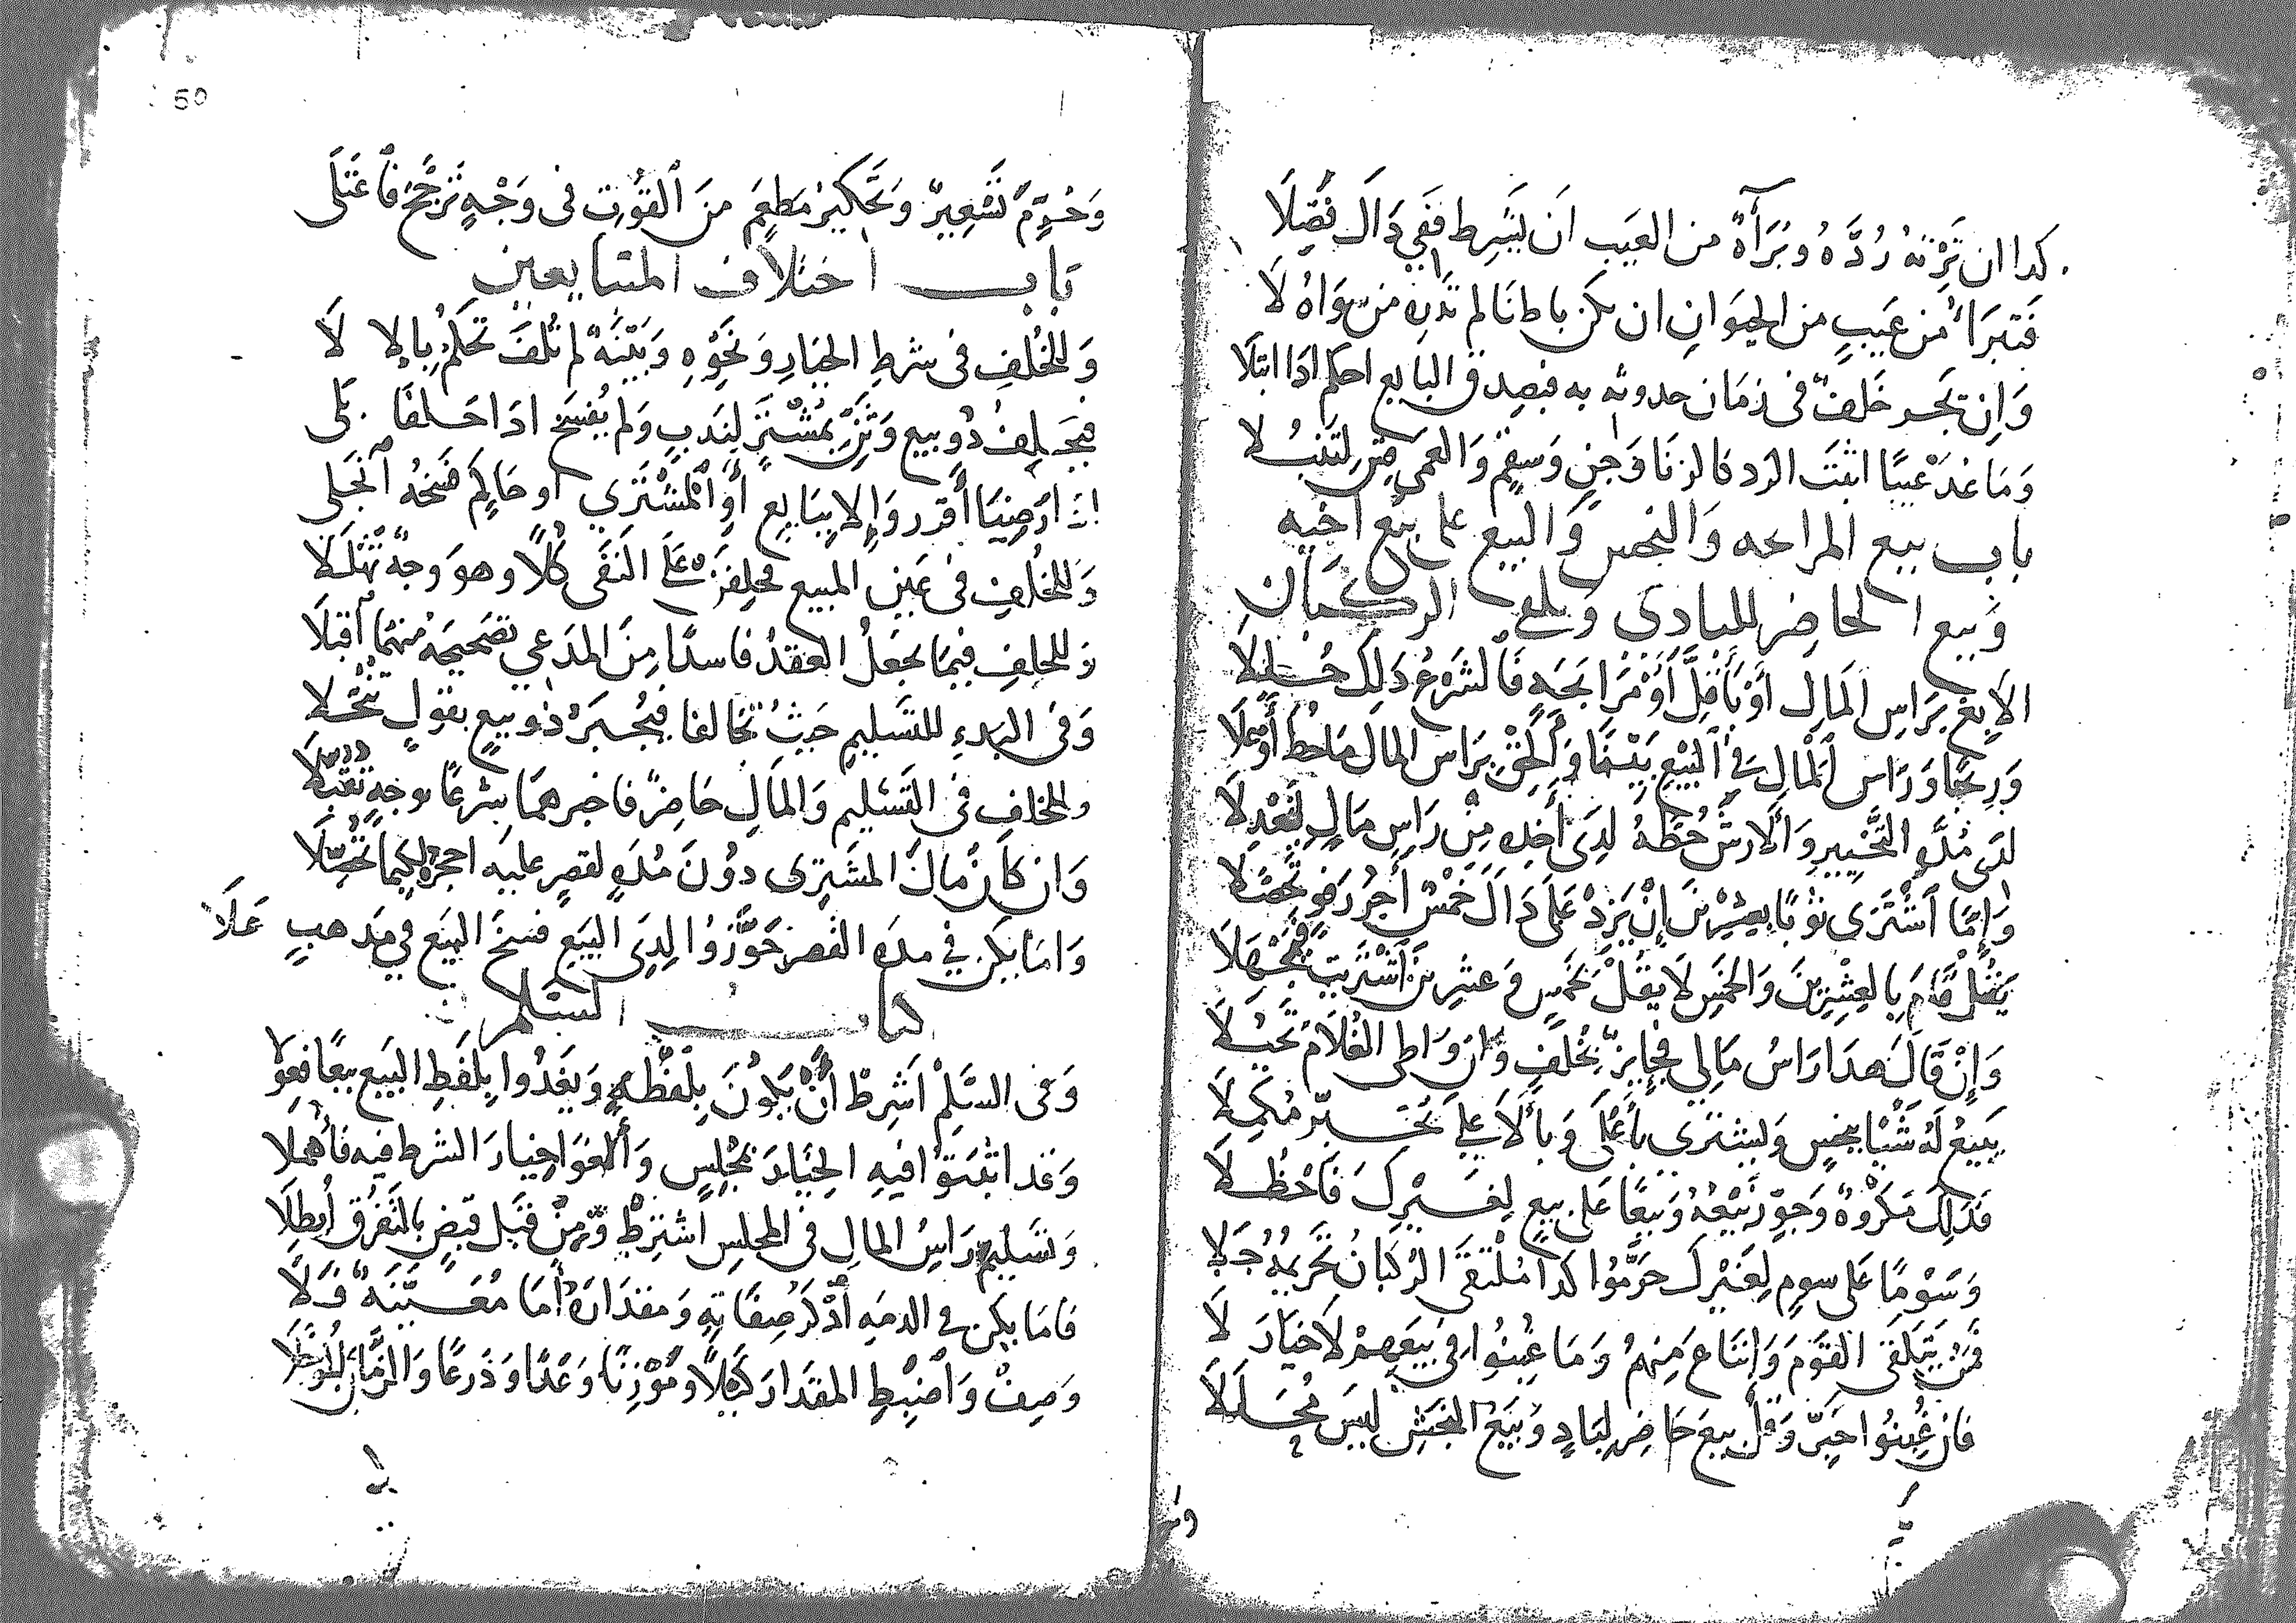 كدا ان تَرْنَهُ رُدَّهُ وبُرَآهُ من العَيب ان يَشَرط فَفي دَاك فَصِّلَا
فتبرَا مِن عَيبٍ من الحيَوَانِ ان يكن باطنَا لم تدره من سِوَاهُ لَا
وَاِن تجر خَلف فى زمَان حدوثه به فيصدق البايع احكم ادَا ابتلَا
وَمَا عُدَ عَيبًا اثبتَ الرَد كالزنَا وَجنٍ وَسقمٍ وَالعمى
باب بيع المرابحه وَالنجس وَالبيع على بيع اخيه
وَبيع الحاضر للبادى وَتلقى الركبَان
الا بِعْ بِرَاسِ المَالِ اَوْ بِأَقلَّ أَوْ مُرَابحَةٍ فَالشرعُ دَلِك حُللَا
وَرِبحًا وَرَاس المَالِ فِي البَيْعِ بَيِّنَا وَأَلحِقْ بِرَاس المال مَا حُطَّ أَوْ عَلَا
لدَى مُدَّهِ التَّخييرِ وَالَارشُ حُطَّهُ لدَى أخدِه مِنْ رَاسِ مَالٍ لِتَعْدِلَا
وَإِمَّا اَشْتَرَى ثوبًا بِعِشْرِينَ إِنْ يَزِدْ عَلَى دَاكَ خَمْسٌ أَجرُ رَفوٍ تحصّلَا
يَقُل قَامَ بِالعِشْرِينَ وَالخَمسِ لَا يَقُلْ بخَمسٍ وَعشرِينَ اَشْتَرَيت فَتجْهَلَا
وَإِنْ قَالَ هدَا رَاسُ مَالِي فجَايِزٌ بخُلفٍ وَان وَاطى الغُلَامَ تَحيُّلَا
يَبِيعُ لَهُ شَيْيا ببخسٍ وَيشترى بأعْلَى وَبالَاعلى يخبِّر مكمِلَا
فَدَلِكَ مَكْرُوهٌ وَجوِّز بَيْعَهُ وَبَيعًا عَلى بيعٍ لِغَيْرِكَ فَاحْظُلَا
وَسَوْمًا عَلى سومٍ لِغَيْرِكَ حَرَّمُوا كدَا مُلْتَقَى الرُكبَانِ تَحريمهُ جَلَا
فمَنْ يَتَلقى القوَمَ وَابتَاعَ مِنهمُ وَمَا غُبِنُوا فى بَيعهِمْ لَا خيَارَ لَا
فان غُبِنُوا خيِّر وَقل بيعَ حَاضرٍ لبَادٍ وَبَيعَ النجشِ ليسَ مُحَللَا
وَ
50
وَحُرِّمَ تَسْعِيرٌ وَتحكيرُ مَطعَمٍ منَ اَلقوتِ فى وَجْهٍ تَرجَّح فاَعْتَلَى
بَاب اختلاف المتبايعين
وَللخُلفِ فى شرطِ الخيَارِ وَنَحْوِهِ وَبَيّنَةٌ لم تُلفَ تحكمُ بِالاِلَا
فيَحلِفُ دُو بيعٍ وَثنِّ بمُشْتَرٍ لِنَدبٍ وَلم يُفسَخ ادَا حَلفَا بلى
اذا رَضِيَا أَقرر وَإِلا بِبَايعٍ أَوِ المشْتَرِي او حَاكِمٍ فسخهُ اَنجَلى
وَللخُلفِ فى عَينِ المبيعِ فحلِفَنْ عَلَى النَفَى كُلًا وهوَ وجهٌ تهَلَّلَا
وَللخلفِ فيمَا يجعَلُ العقدَ فَاسدًا مِنَ المدَعي تصَحيحَهُ منهمَا اَقبَلَا
وَفى البَدءِ للتسَليمِ حَيثُ تخَالفا فيُجْبَرُ ذو بيعٍ بقولٍ تنَخَّلَا
وللخلفِ فى التسَليمِ وَالمَالِ حَاضرٌ فاجبرهمَا شرعًا بوجهٍ تقبّلَا
وَان كَانَ مَالُ المشَترِى دُونَ مُدَهٍ لقصرٍ عليه احجرهُ كيمَا تحُصّلَا
وَامَا يكن في مدَه القصر جَوَّزوا لِدِى البيَعِ فسخَ البيَع في مَدهبٍ عَلَا
كتاب السَلم
وَفى السَلَمْ اَشرطْ أَنْ يكُونَ بِلفظهِ وَيغدُوا بِلفَظِ البَيع بيعًا فعَوِّلَا
وَقد اثبتَوا فيهِ الخيَارَ بمَجْلِسٍ وَأَلغَوا خيارَ الشرط فيه فأهملا
وَتسَليمُ رَاسِ المالِ فى المجلسِ اَشترِطْ وَمِنْ قَبل قبَضٍ بالتَفَرُق أُبطِلَا
فَامَا يكن في الدمَهِ اُذْكر صِفَاتِهِ وَمقدَارَهُ أمَا مُعَيّنَهٌ فَلَا
وَصِفْ وَاَضبِطِ المقدَار كَيْلًا وَمَوْزِنًا وَعَدًا وَذَرعًا وَالزمَان